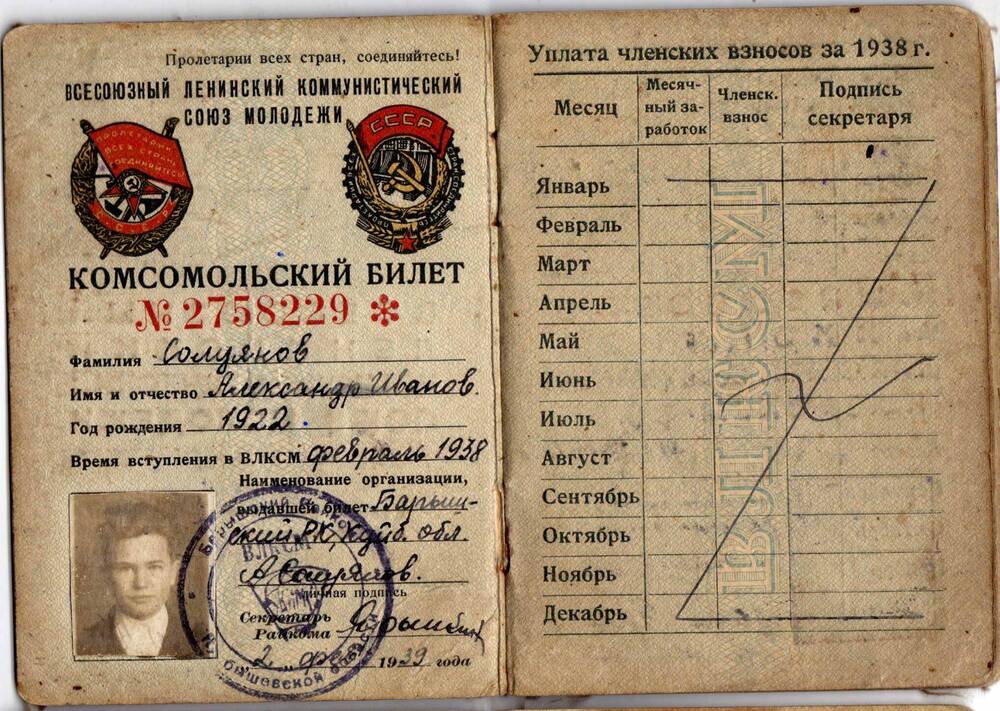 Пролетарии всех стран, соединяйтесь!
ВСЕСОЮЗНЫЙ ЛЕНИНСКИЙ КОММУНИСТИЧЕСКИЙ
СОЮЗ МОЛОДЕЖИ
ПРОЛЕТАРИИ
ВСЕХ СТРАН
СОЕДИНЯЙТЕСЬ
СССР
СССР
КОМСОМОЛЬСКИЙ БИЛЕТ
№ 2758229
Фамилия Солуянов
Имя и отчество Александр Иванов.
Год рождения 1922.
Время вступления в ВЛКСМ февраль 1938
Наименование организации,
выдавшей билет Барыш-
ский РК, Куйб. обл.
ВЛКСМ
Личная подпись
Секретарь
Райкома
2 фев 1939 года
Уплата членских взносов за 1938 г.
Месяц
Месяч-
ный за-
работок
Членск.
взнос
Подпись
секретаря
Январь
Февраль
Март
Апрель
Май
Июнь
Июль
Август
Сентябрь
Октябрь
Ноябрь
Декабрь
ВЛКСМ